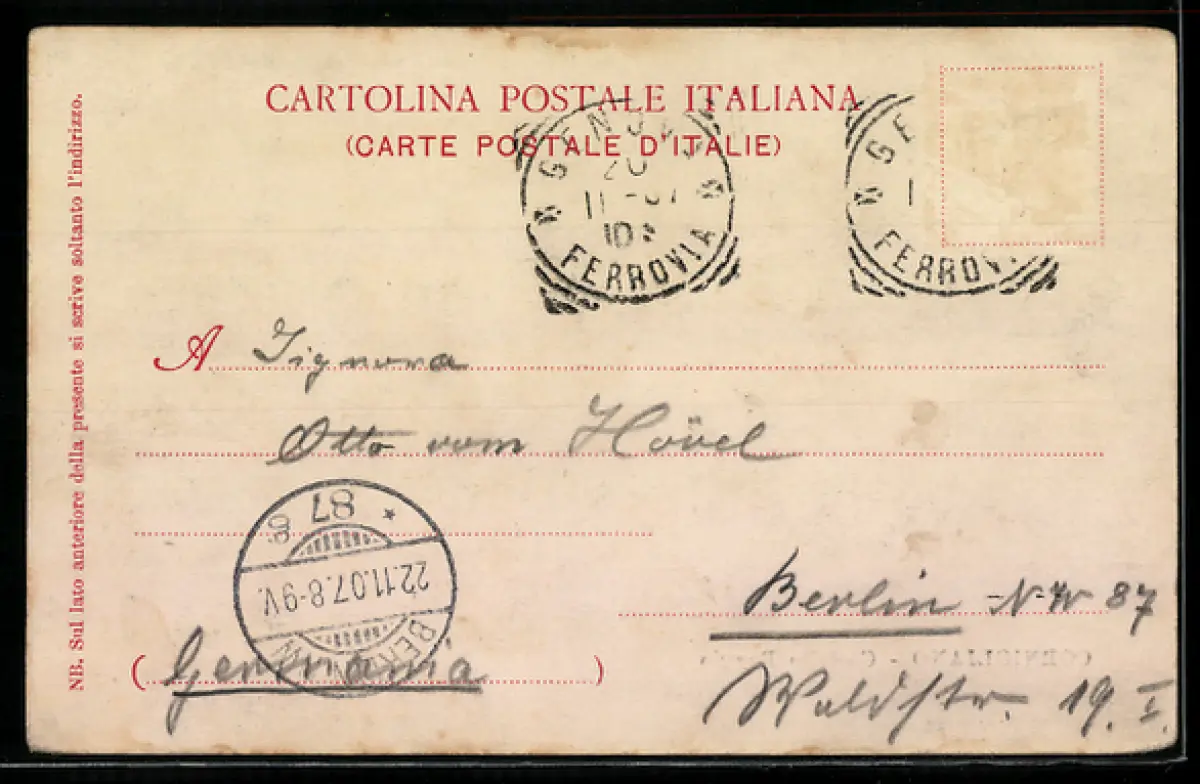 CARTOLINA POSTALE ITALIANA
(CARTE POSTALE D'ITALIE)
GENOVA
20
11-07
10S
FERROVIA
GE
1
FERROV
NB. Sul lato anteriore della presente si scrive soltanto l'indirizzo.
A Signora
Otto vom Hövel
* 87 g.
22.11.07.8-9V.
BERLIN NW
Berlin N.W 87
(Germania)
Waldstr. 19. I.